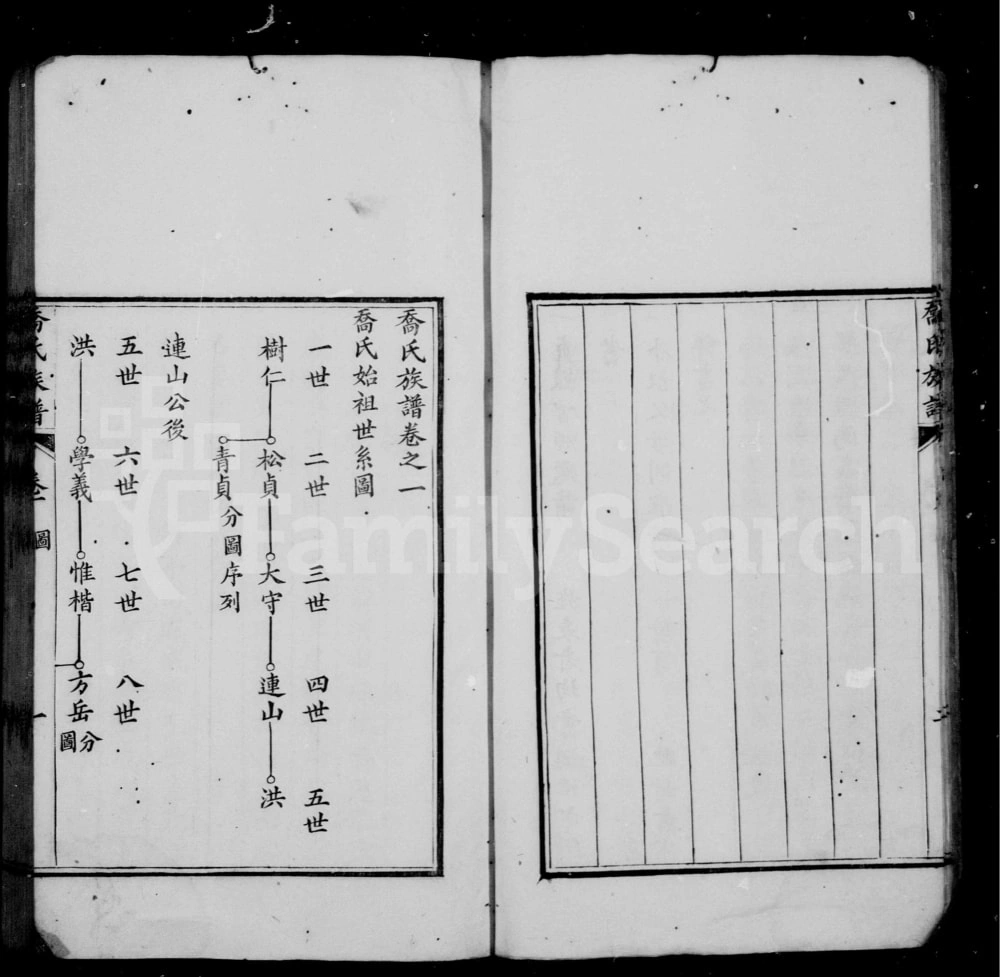 喬氏族譜
三
喬氏族譜卷之一
喬氏始祖世系圖
一世 二世 三世 四世 五世
樹仁 松貞 大守 連山 洪
青貞分圖序列
連山公後
五世 六世 七世 八世
洪 學義 惟楷 方岳分圖
喬氏族譜 卷一 圖 一
FamilySearch